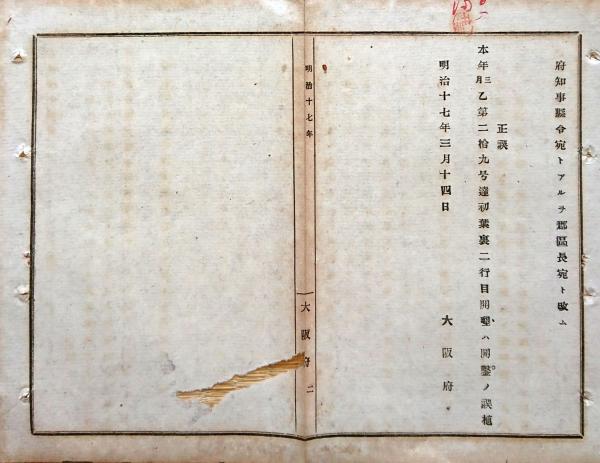 府知事縣令宛トアルヲ郡區長宛ト改ム
正誤
本年三月乙第二拾九号達初葉裏二行目開墾ハ開鑿ノ誤植
明治十七年三月十四日 大阪府
明治十七年 大阪府 二